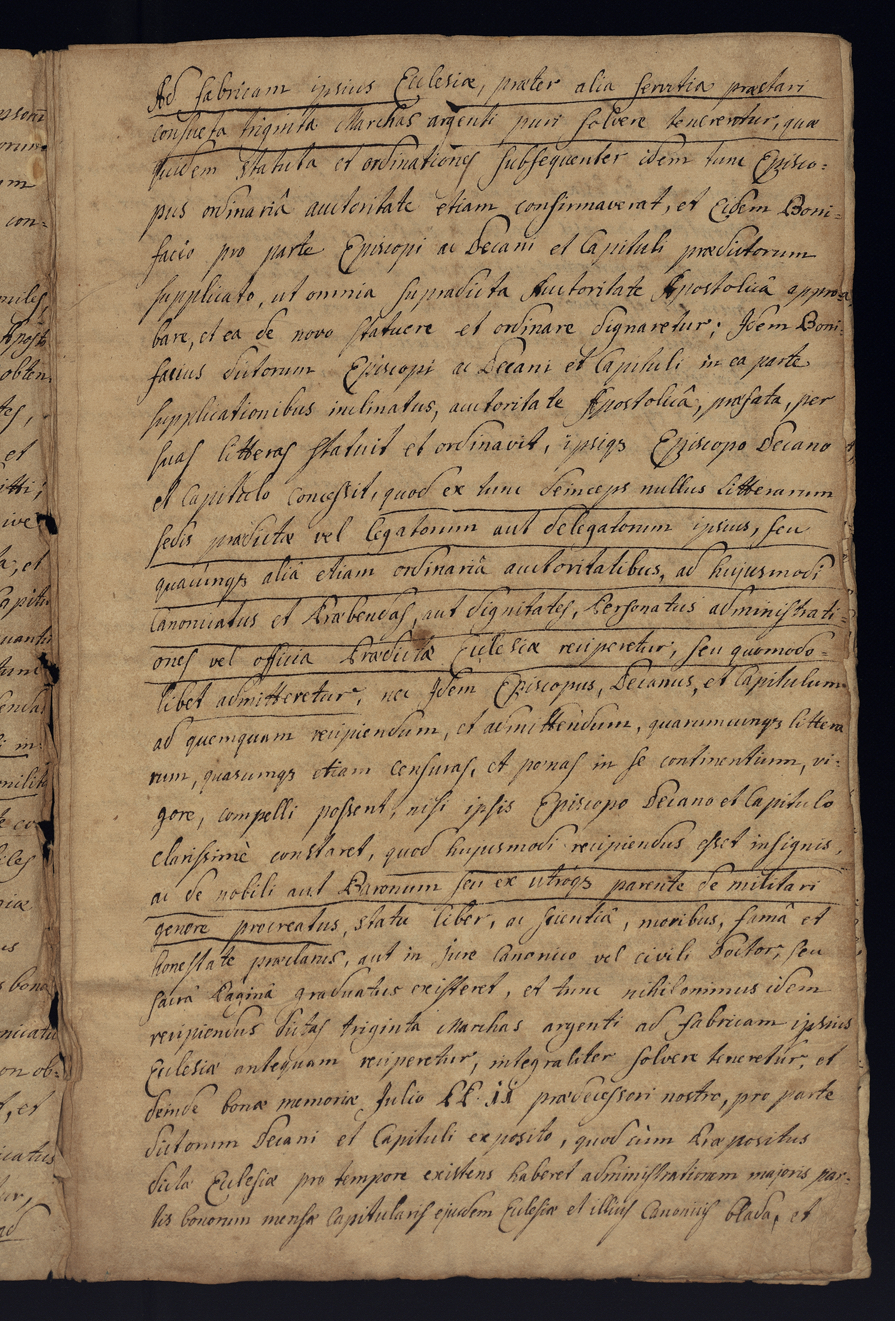 Ad fabricam ipsius Ecclesiæ, præter alia servitia præstari
consueta triginta Marchas argenti puri solvere tenerentur, quæ
quidem statuta et ordinationes subsequenter idem tunc Episco=
pus ordinariâ auctoritate etiam confirmaverat, et Eidem Boni=
facio pro parte Episcopi ac Decani et Capituli prædictorum
supplicato, ut omnia supradicta Auctoritate Apostolicâ appro=
bare, et ea de novo statuere et ordinare dignaretur; Idem Boni=
facius dictorum Episcopi ac Decani et Capituli in ea parte
supplicationibus inclinatus, auctoritate Apostolicâ, præfata, per
suas litteras statuit et ordinavit, ipsiqz Episcopo Decano
et Capitulo concessit, quod ex tunc deinceps nullus litterarum
sedis prædictæ vel legatorum aut delegatorum ipsius, seu
quacunqz alia etiam ordinariâ auctoritatibus, ad hujusmodi
Canonicatus et Præbendas, aut dignitates, Personatus administrati=
ones vel officia Prædictæ Ecclesiæ reciperetur, seu quomodo=
libet admitteretur, nec Idem Episcopus, Decanus, et Capitulum
ad quemquam recipiendum, et admittendum, quarumcunqz littera
rum, quascumqz etiam censuras, et pœnas in se continentium, vi=
gore, compelli possent, nisi ipsis Episcopo Decano et Capitulo
clarissimè constaret, quod hujusmodi recipiendus esset insignis,
ac de nobili aut Baronum seu ex utroqz parente de militari
genere procreatus, statu liber, ac scientiâ, moribus, famâ et
honestate præclarus, aut in Jure Canonico vel civili Doctor, seu
sacrâ Paginâ graduatus existeret, et tunc nihilominus idem
recipiendus dictas triginta Marchas argenti ad fabricam ipsius
Ecclesiæ antequam reciperetur, integraliter solvere teneretur, et
deinde bonæ memoriæ Julio PP. II prædecessori nostro, pro parte
dictorum Decani et Capituli exposito, quod cùm Præpositus
dictæ Ecclesiæ pro tempore existens haberet administrationem majoris par=
tis bonorum mensæ Capitularis ejusdem Ecclesiæ et illius Canonicis blada, et